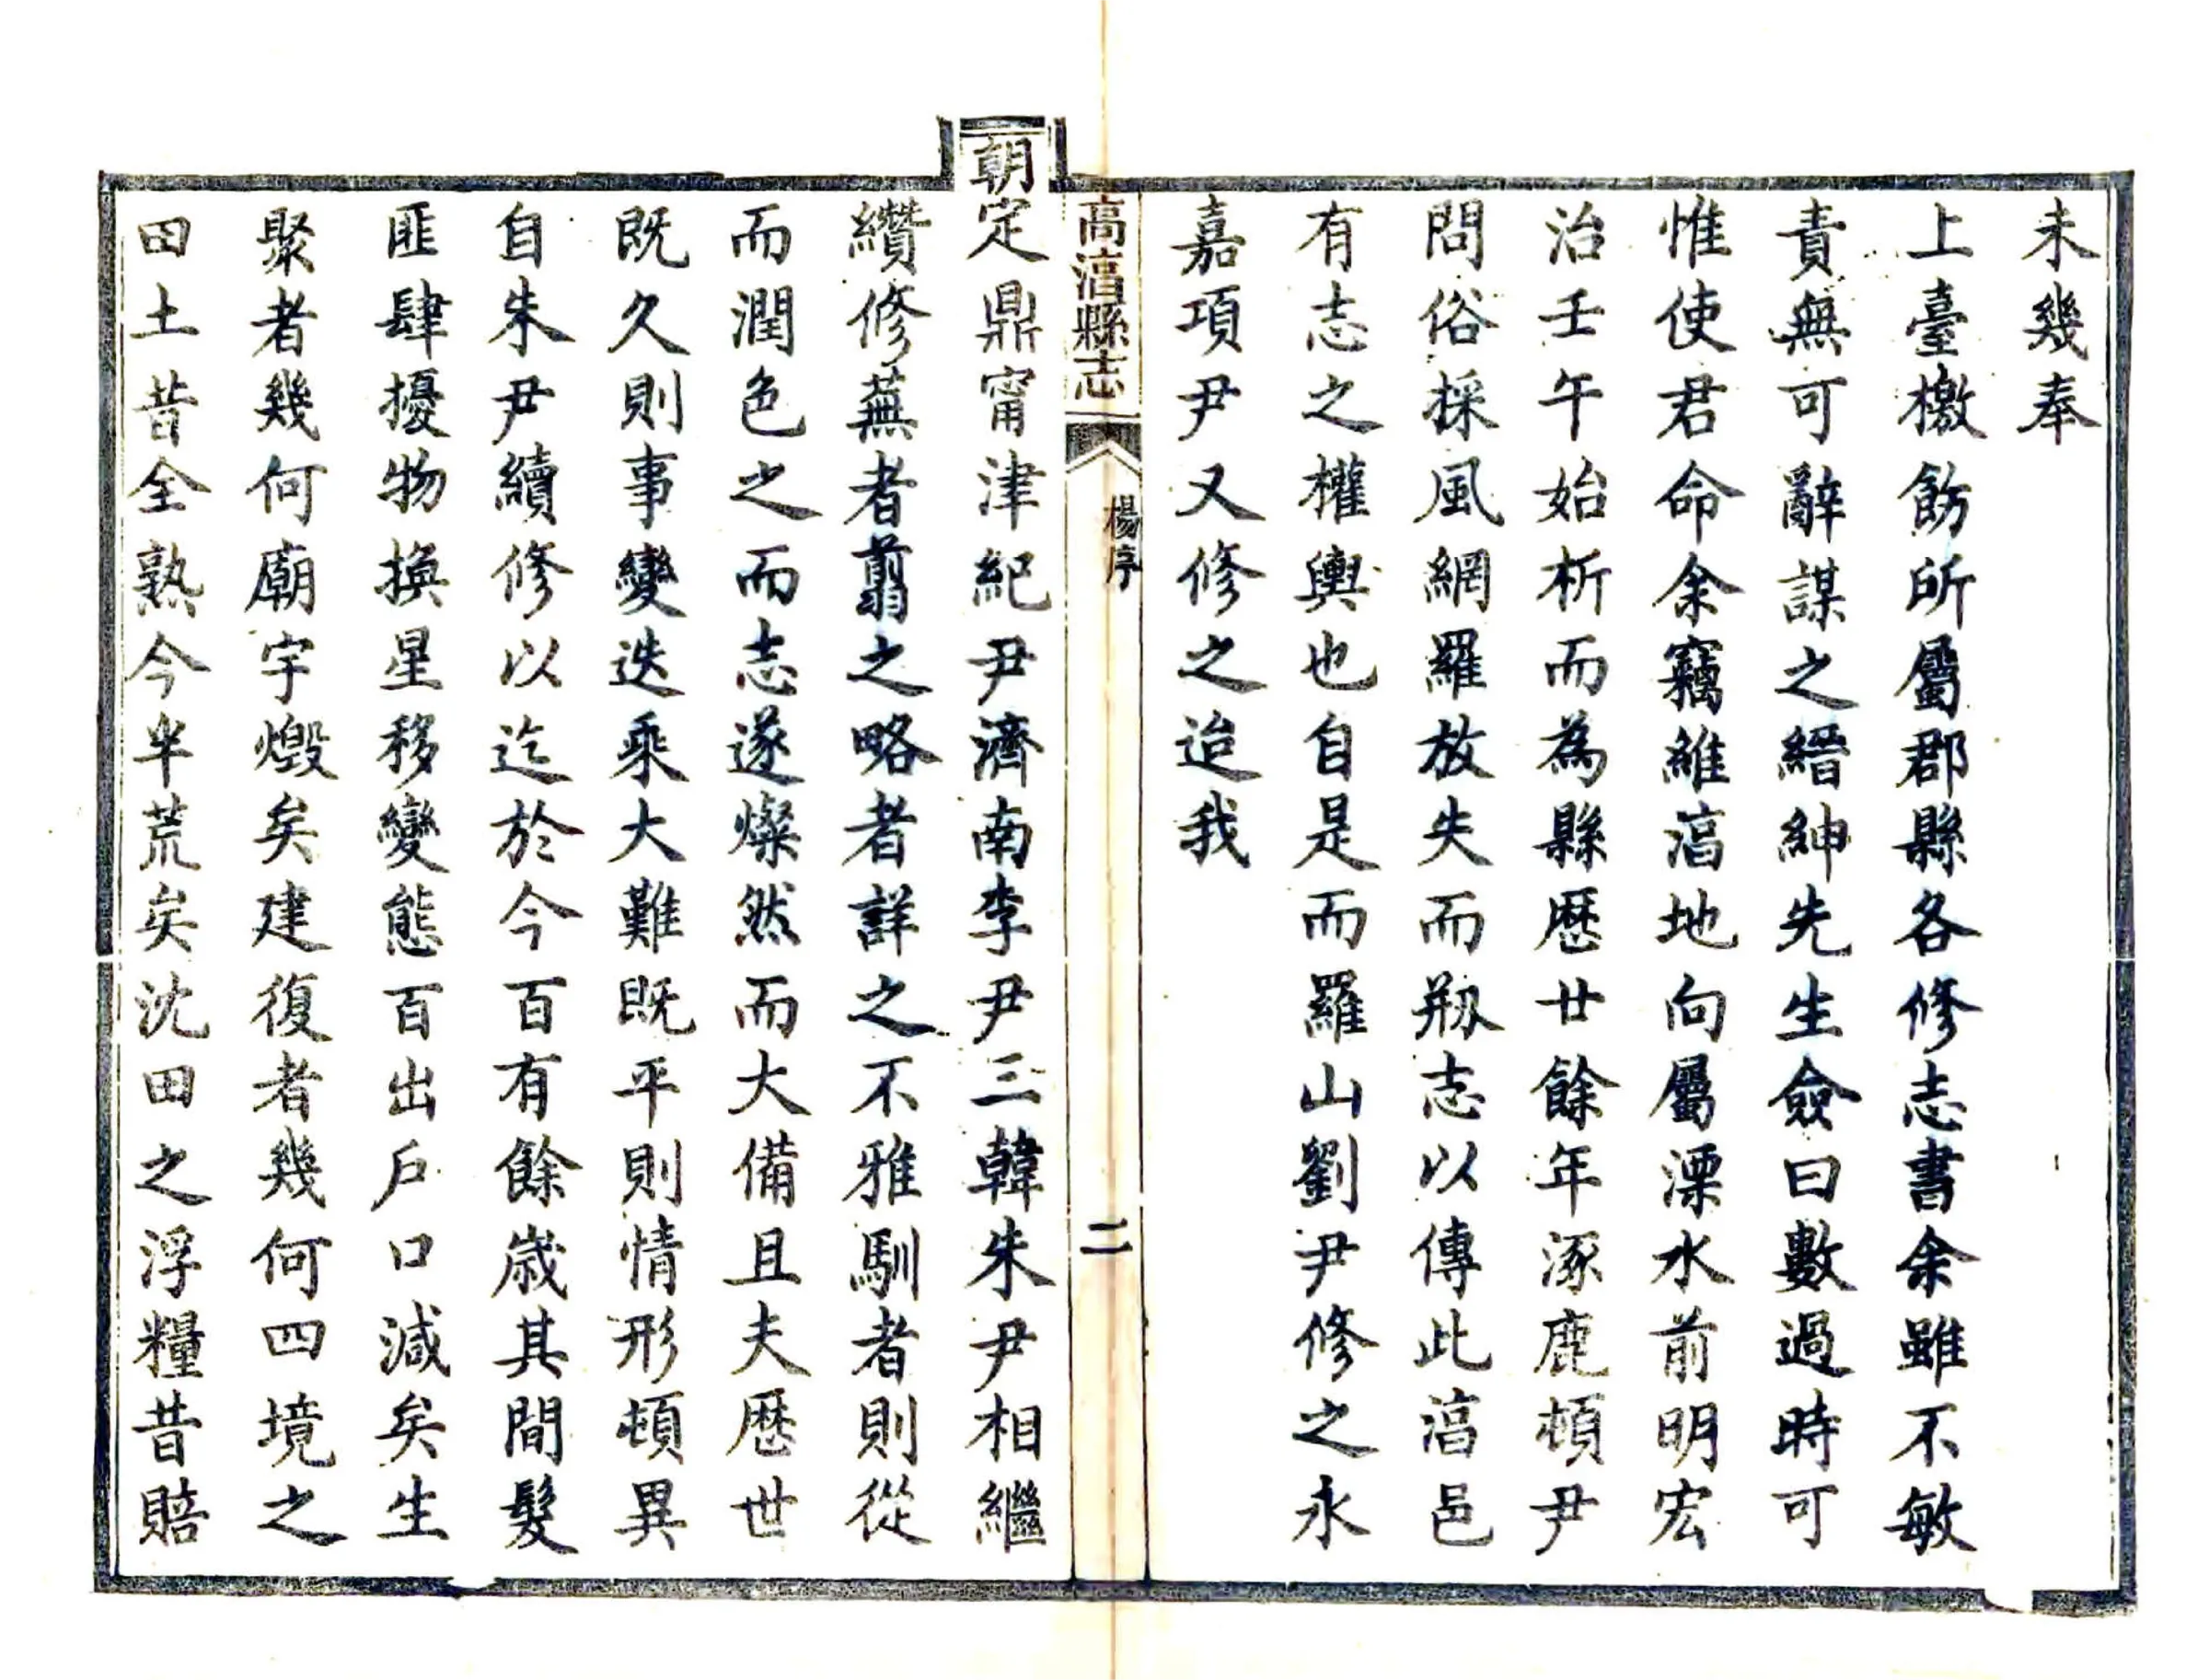 未幾奉
上臺檄飭所屬郡縣各修志書余雖不敏
責無可辭謀之縉紳先生僉曰數過時可
惟使君命余竊維湻地向屬溧水前明宏
治壬午始析而為縣歷廿餘年涿鹿頓尹
問俗採風網羅放失而剏志以傳此湻邑
有志之權輿也自是而羅山劉尹修之永
嘉項尹又修之迨我
高湻縣志
楊序
二
朝定鼎甯津紀尹濟南李尹三韓朱尹相繼
纘修蕪者翦之略者詳之不雅馴者則從
而潤色之而志遂燦然而大備且夫歷世
既久則事變迭乘大難既平則情形頓異
自朱尹續修以迄於今百有餘歲其間髮
匪肆擾物換星移變態百出戶口減矣生
聚者幾何廟宇燬矣建復者幾何四境之
田土昔全熟今半荒矣沈田之浮糧昔賠